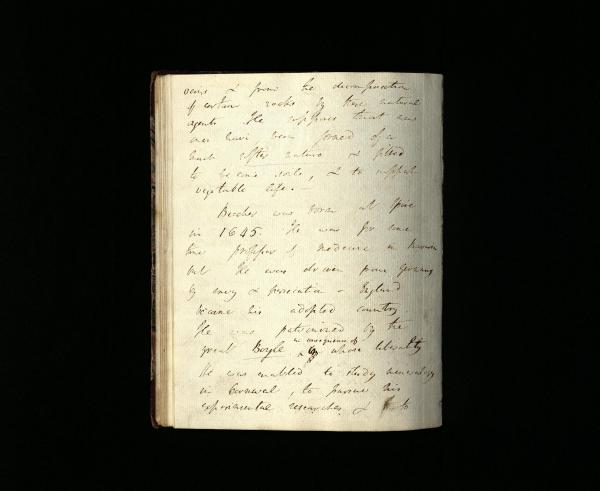 rains & from the decomposition
of certain rocks by these natural
agents He supposes that new
ones have been formed of a
much softer nature & fitted
to become soils, & to support
vegetable life. —
Becher was born at Spire
in 1645. He was for some
time professor of medicine in
but he was driven from Germany
by envy & persecution - England
became his adopted country
He was patronized by the
great Boyle in consequence of whose liberality
he was enabled to study mineralogy
in Cornwall, to pursue his
experimental researches, & to